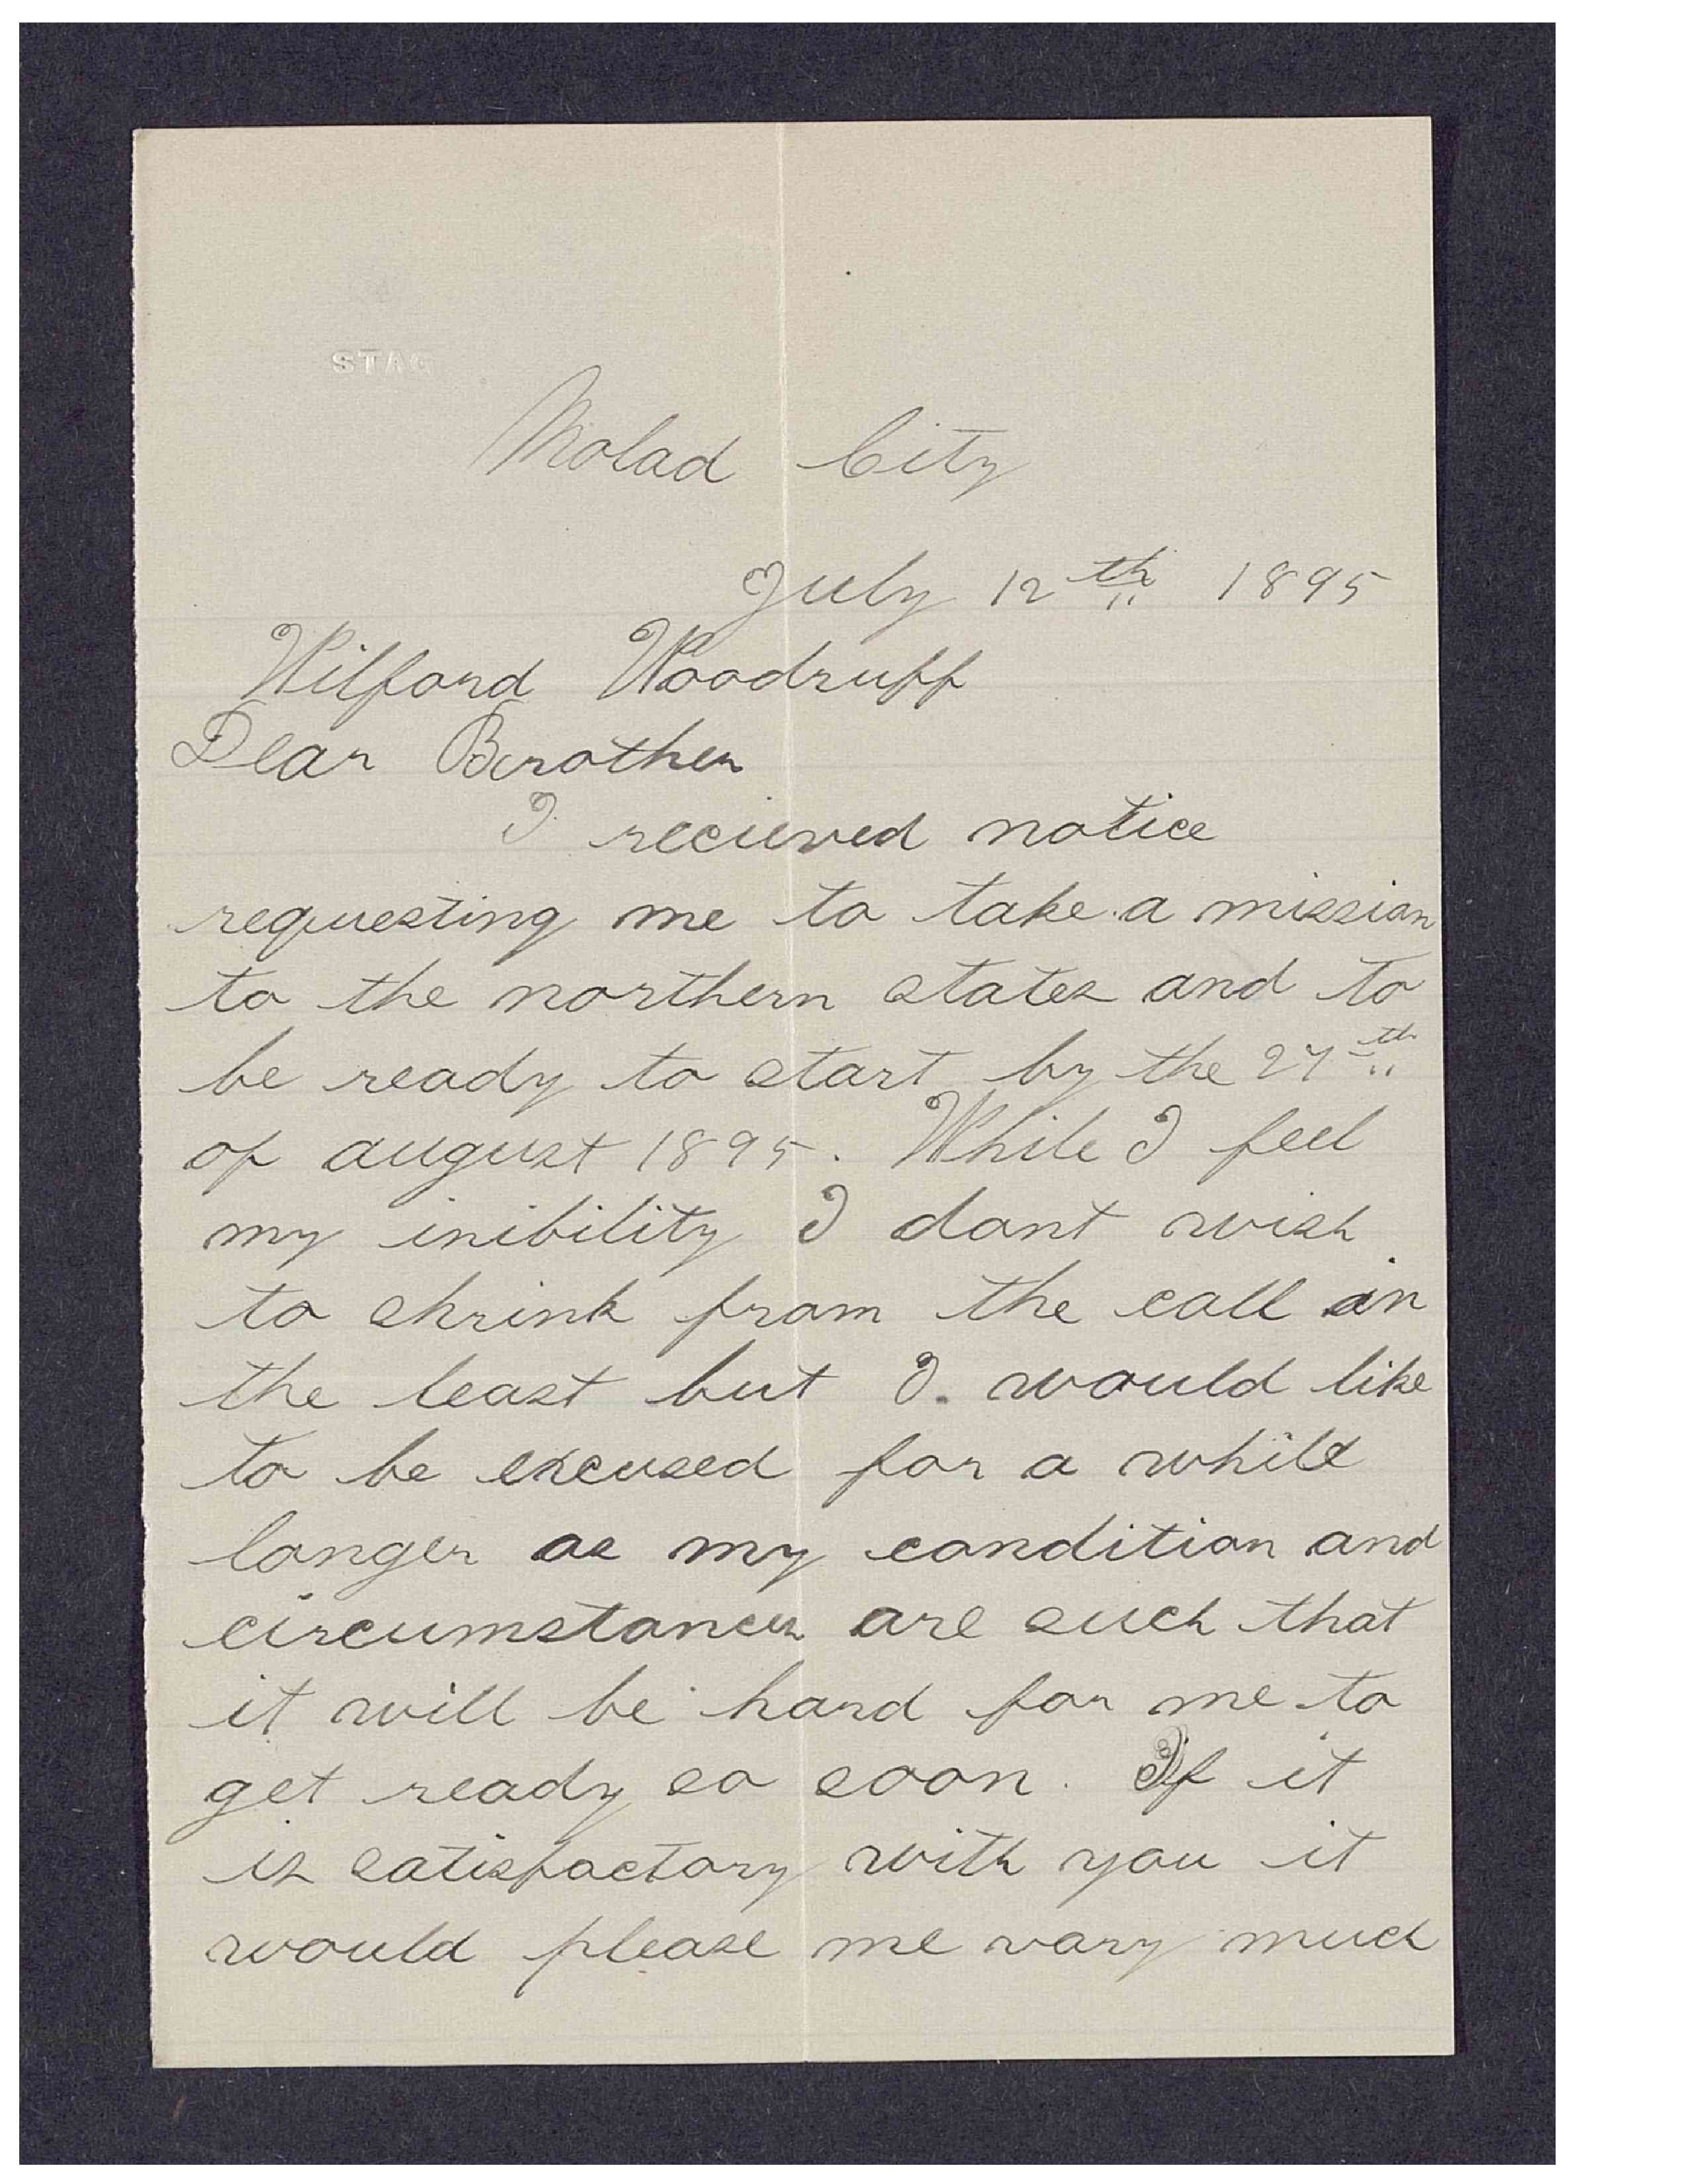 STAG
Malad City
July 12th 1895
Wilford Woodruff
Dear Brother
I recieved notice
requesting me to take a mission
to the northern states and to
be ready to start by the 27th
of august 1895. While I feel
my inibility I dont wish
to shrink from the call in
the least but I would like
to be excused for a while
longer as my condition and
circumstances are such that
it will be hard for me to
get ready so soon. If it
is satisfactory with you it
would please me vary much